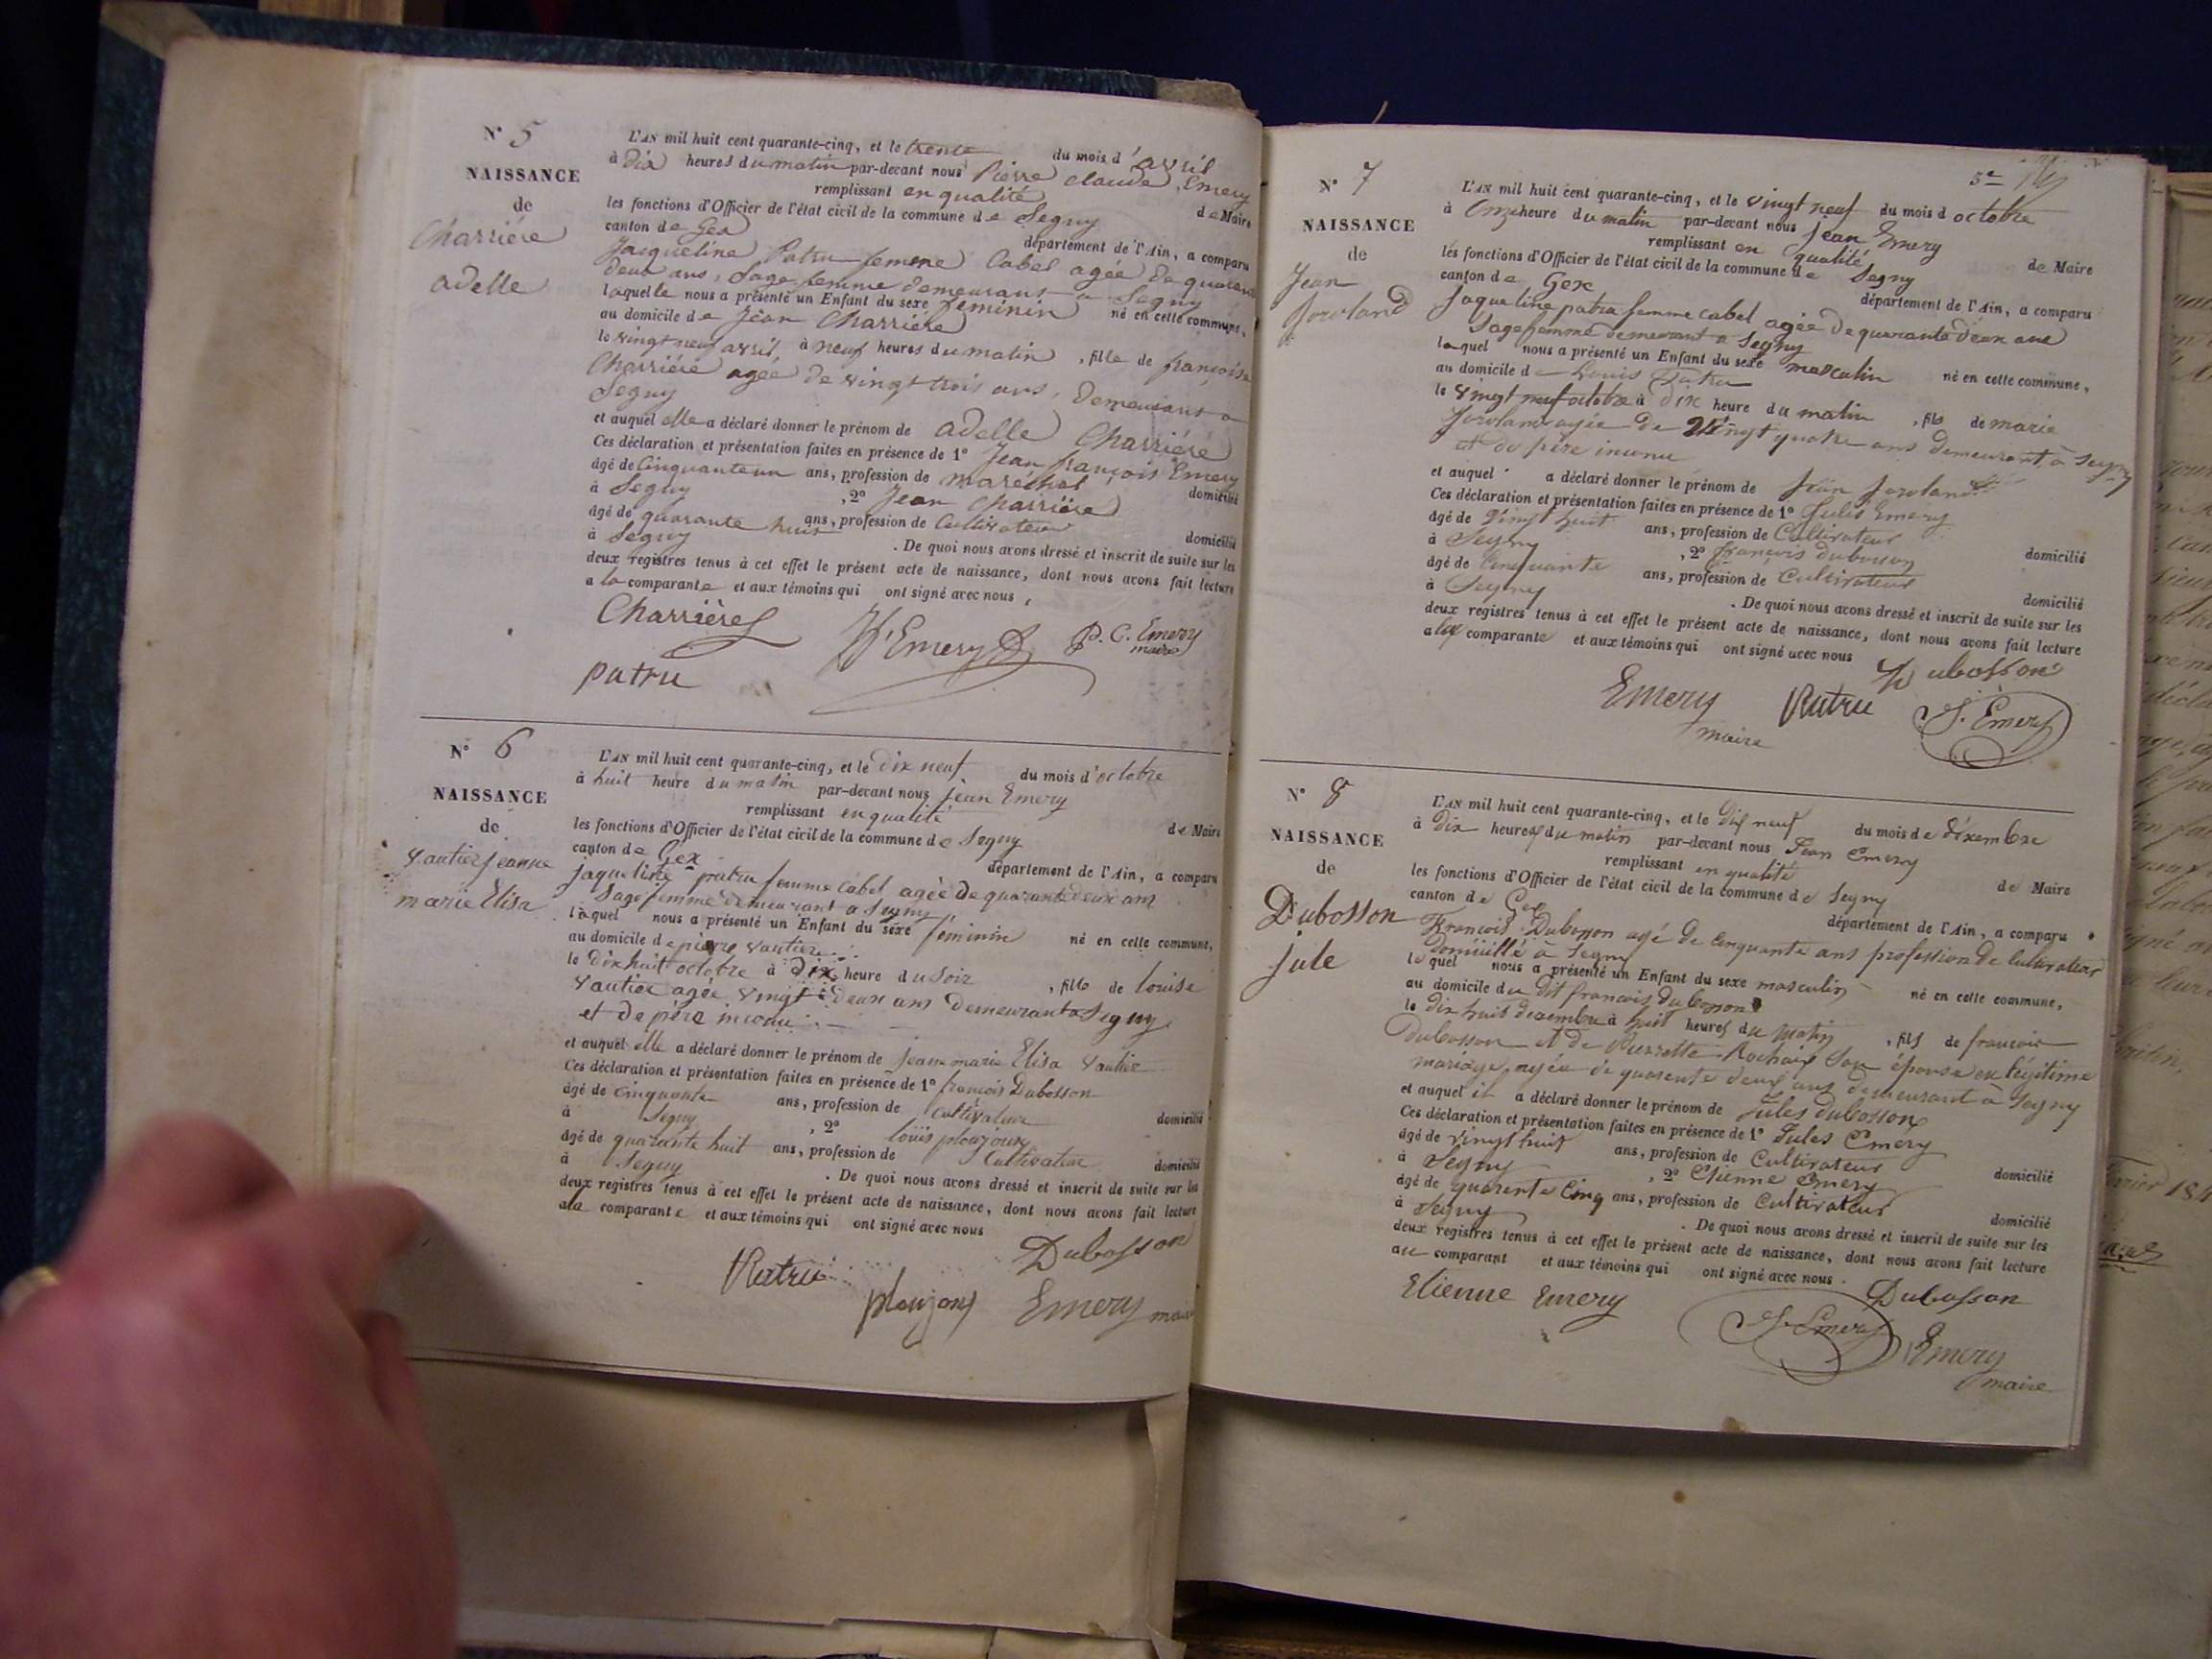 N° 5
NAISSANCE
de
Charriére
adelle
L'AN mil huit cent quarante-cinq, et le trente du mois d'avril
à dix heures du matin par-devant nous Pierre claude Emery
remplissant en qualité de Maire
les fonctions d'Officier de l'état civil de la commune de Segny
canton de Gex département de l'Ain, a comparu
Jacqueline Patru femme Cabel agée de quarante
deux ans, Sage femme demeurant a Segny
laquelle nous a présenté un Enfant du sexe feminin né en cette commune,
au domicile de Jean Charriére
le vingt neuf avril, à neuf heures du matin, fille de françoise
Charriére agée de vingt trois ans, demeurant a
Segny
et auquel elle a déclaré donner le prénom de adelle Charriéré
Ces déclaration et présentation faites en présence de 1° Jean françois Emery
âgé de Cinquante un ans, profession de maréchal domicilié
à Segny, 2° Jean Charriére
âgé de quarante huit ans, profession de Cultivateur domicilié
à Segny. De quoi nous avons dressé et inscrit de suite sur les
deux registres tenus à cet effet le présent acte de naissance, dont nous avons fait lecture
a la comparante et aux témoins qui ont signé avec nous,
Charrière
Emery P. C. Emery
maire
patru
N° 6
NAISSANCE
de
Vautier jeanne
marie Elisa
L'AN mil huit cent quarante-cinq, et le dix neuf du mois d'octobre
à huit heure du matin par-devant nous jean Emery
remplissant en qualité de Maire
les fonctions d'Officier de l'état civil de la commune de Segny
canton de Gex département de l'Ain, a comparu
jaqueline patru femme Cabel agée de quarante deux ans
Sage femme demeurant a Segny
laquel nous a présenté un Enfant du sexe feminin né en cette commune,
au domicile de pierre vautier
le dix huit octobre à dix heure du soir, fille de louise
Vautier agée vingt deux ans demeurant a Segny
et de père inconu
et auquel elle a déclaré donner le prénom de jeane marie Elisa Vautier
Ces déclaration et présentation faites en présence de 1° françois Dubosson
âgé de cinquante ans, profession de Cultivateur domicilié
à Segny, 2° louis ploujoux
âgé de quarante huit ans, profession de Cultivateur domicilié
à Segny. De quoi nous avons dressé et inscrit de suite sur les
deux registres tenus à cet effet le présent acte de naissance, dont nous avons fait lecture
a la comparante et aux témoins qui ont signé avec nous
Dubosson
Patru
Emery maire
N° 7
NAISSANCE
de
Jean
L'AN mil huit cent quarante-cinq, et le vingt neuf du mois d octobre
à onze heure du matin par-devant nous jean Emery
remplissant en qualité de Maire
les fonctions d'Officier de l'état civil de la commune de Segny
canton de Gex département de l'Ain, a comparu
jaqueline patru femme cabel agée de quarante deux ans
Sage femme demeurant a Segny
laquel nous a présenté un Enfant du sexe masculin né en cette commune,
au domicile de Louis Patru
le vingt neuf octobre à dix heure du matin, fils de marie
agée de vingt quatre ans demeurant à Segny
et de père inconu
et auquel a déclaré donner le prénom de Jean
Ces déclaration et présentation faites en présence de 1° Jules Emery
âgé de vingt huit ans, profession de Cultivateur
à Segny, 2° françois dubosson domicilié
âgé de Cinquante ans, profession de Cultivateur
à Segny domicilié
. De quoi nous avons dressé et inscrit de suite sur les
deux registres tenus à cet effet le présent acte de naissance, dont nous avons fait lecture
a la comparante et aux témoins qui ont signé avec nous
Dubosson
Emery Patru J. Emery
maire
N° 8
NAISSANCE
de
Dubosson
jule
L'AN mil huit cent quarante-cinq, et le dix neuf du mois de décembre
à dix heures du matin par-devant nous Jean Emery
remplissant en qualité de Maire
les fonctions d'Officier de l'état civil de la commune de Segny
canton de Gex département de l'Ain, a comparu
François Dubosson agé de Cinquante ans profession de Cultivateur
domicillié à Segny
lequel nous a présenté un Enfant du sexe masculin né en cette commune,
au domicile du dit françois dubosson
le dix huit décembre à huit heures du matin, fils de françois
Dubosson et de Pierrette Rochaix son épouse en légitime
mariage, agée de quarente deux ans demeurant à Segny
et auquel il a déclaré donner le prénom de Jules dubosson
Ces déclaration et présentation faites en présence de 1° Jules Emery
âgé de vingt huit ans, profession de Cultivateur
à Segny, 2° Etienne Emery domicilié
âgé de quarente Cinq ans, profession de Cultivateur
à Segny domicilié
. De quoi nous avons dressé et inscrit de suite sur les
deux registres tenus à cet effet le présent acte de naissance, dont nous avons fait lecture
au comparant et aux témoins qui ont signé avec nous.
Etienne Emery Dubosson
J. Emery Emery
maire